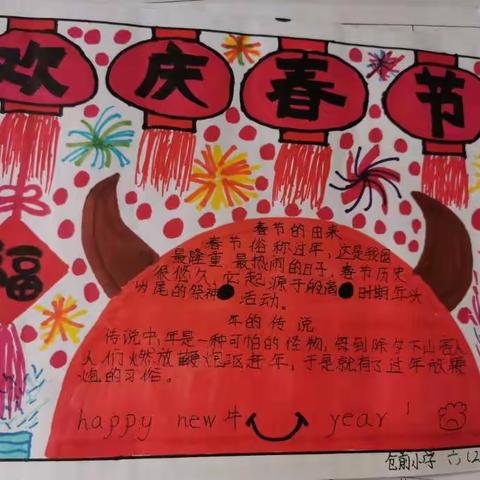 欢庆春节
福
春节的由来
春节俗称过年，这是我国
最隆重，最热闹的日子，春节历史
很悠久，它起源于殷商时期年头
岁尾的祭神活动。
年的传说
传说中，年是一种可怕的怪物，每到除夕下山害人
人们燃放鞭炮驱赶年，于是就有了过年放鞭
炮的习俗。
happy new 牛 year！
包前小学 六（2